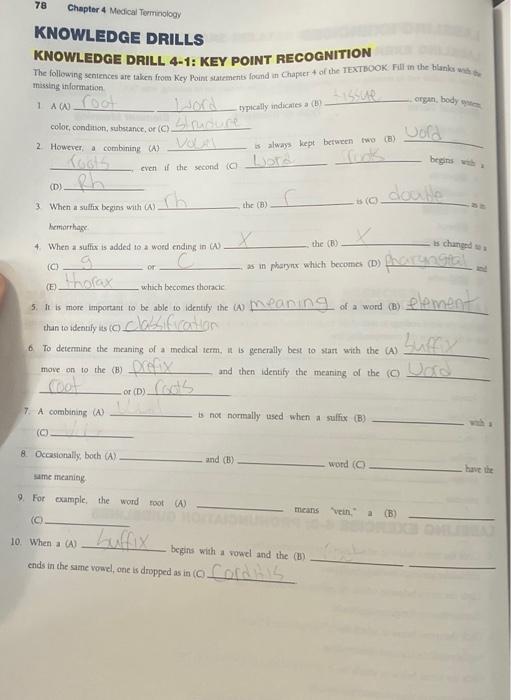 78 Chapter 4 Medical Terminology
KNOWLEDGE DRILLS
KNOWLEDGE DRILL 4-1: KEY POINT RECOGNITION
The following sentences are taken from Key Point statements found in Chapter 4 of the TEXTBOOK. Fill in the blanks with the
missing information.
1. A (A) root word typically indicates a (B) tissue, organ, body system,
color, condition, substance, or (C) Structure
2. However, a combining (A) Vowel is always kept between two (B) word
roots, even if the second (C) Word roots begins with a
(D) Rh
3. When a suffix begins with (A) rh, the (B) r is (C) double as in
hemorrhage.
4. When a suffix is added to a word ending in (A) X, the (B) X is changed to a
(C) g or C as in pharynx which becomes (D) pharyngial and
(E) thorax which becomes thoracic.
5. It is more important to be able to identify the (A) meaning of a word (B) element
than to identify its (C) Classification
6. To determine the meaning of a medical term, it is generally best to start with the (A) Suffix
move on to the (B) prefix and then identify the meaning of the (C) Word
root or (D) roots
7. A combining (A) is not normally used when a suffix (B) with a
(C)
8. Occasionally, both (A) and (B) word (C) have the
same meaning.
9. For example, the word root (A) means "vein," a (B)
(C)
10. When a (A) Suffix begins with a vowel and the (B)
ends in the same vowel, one is dropped as in (C) Carditis